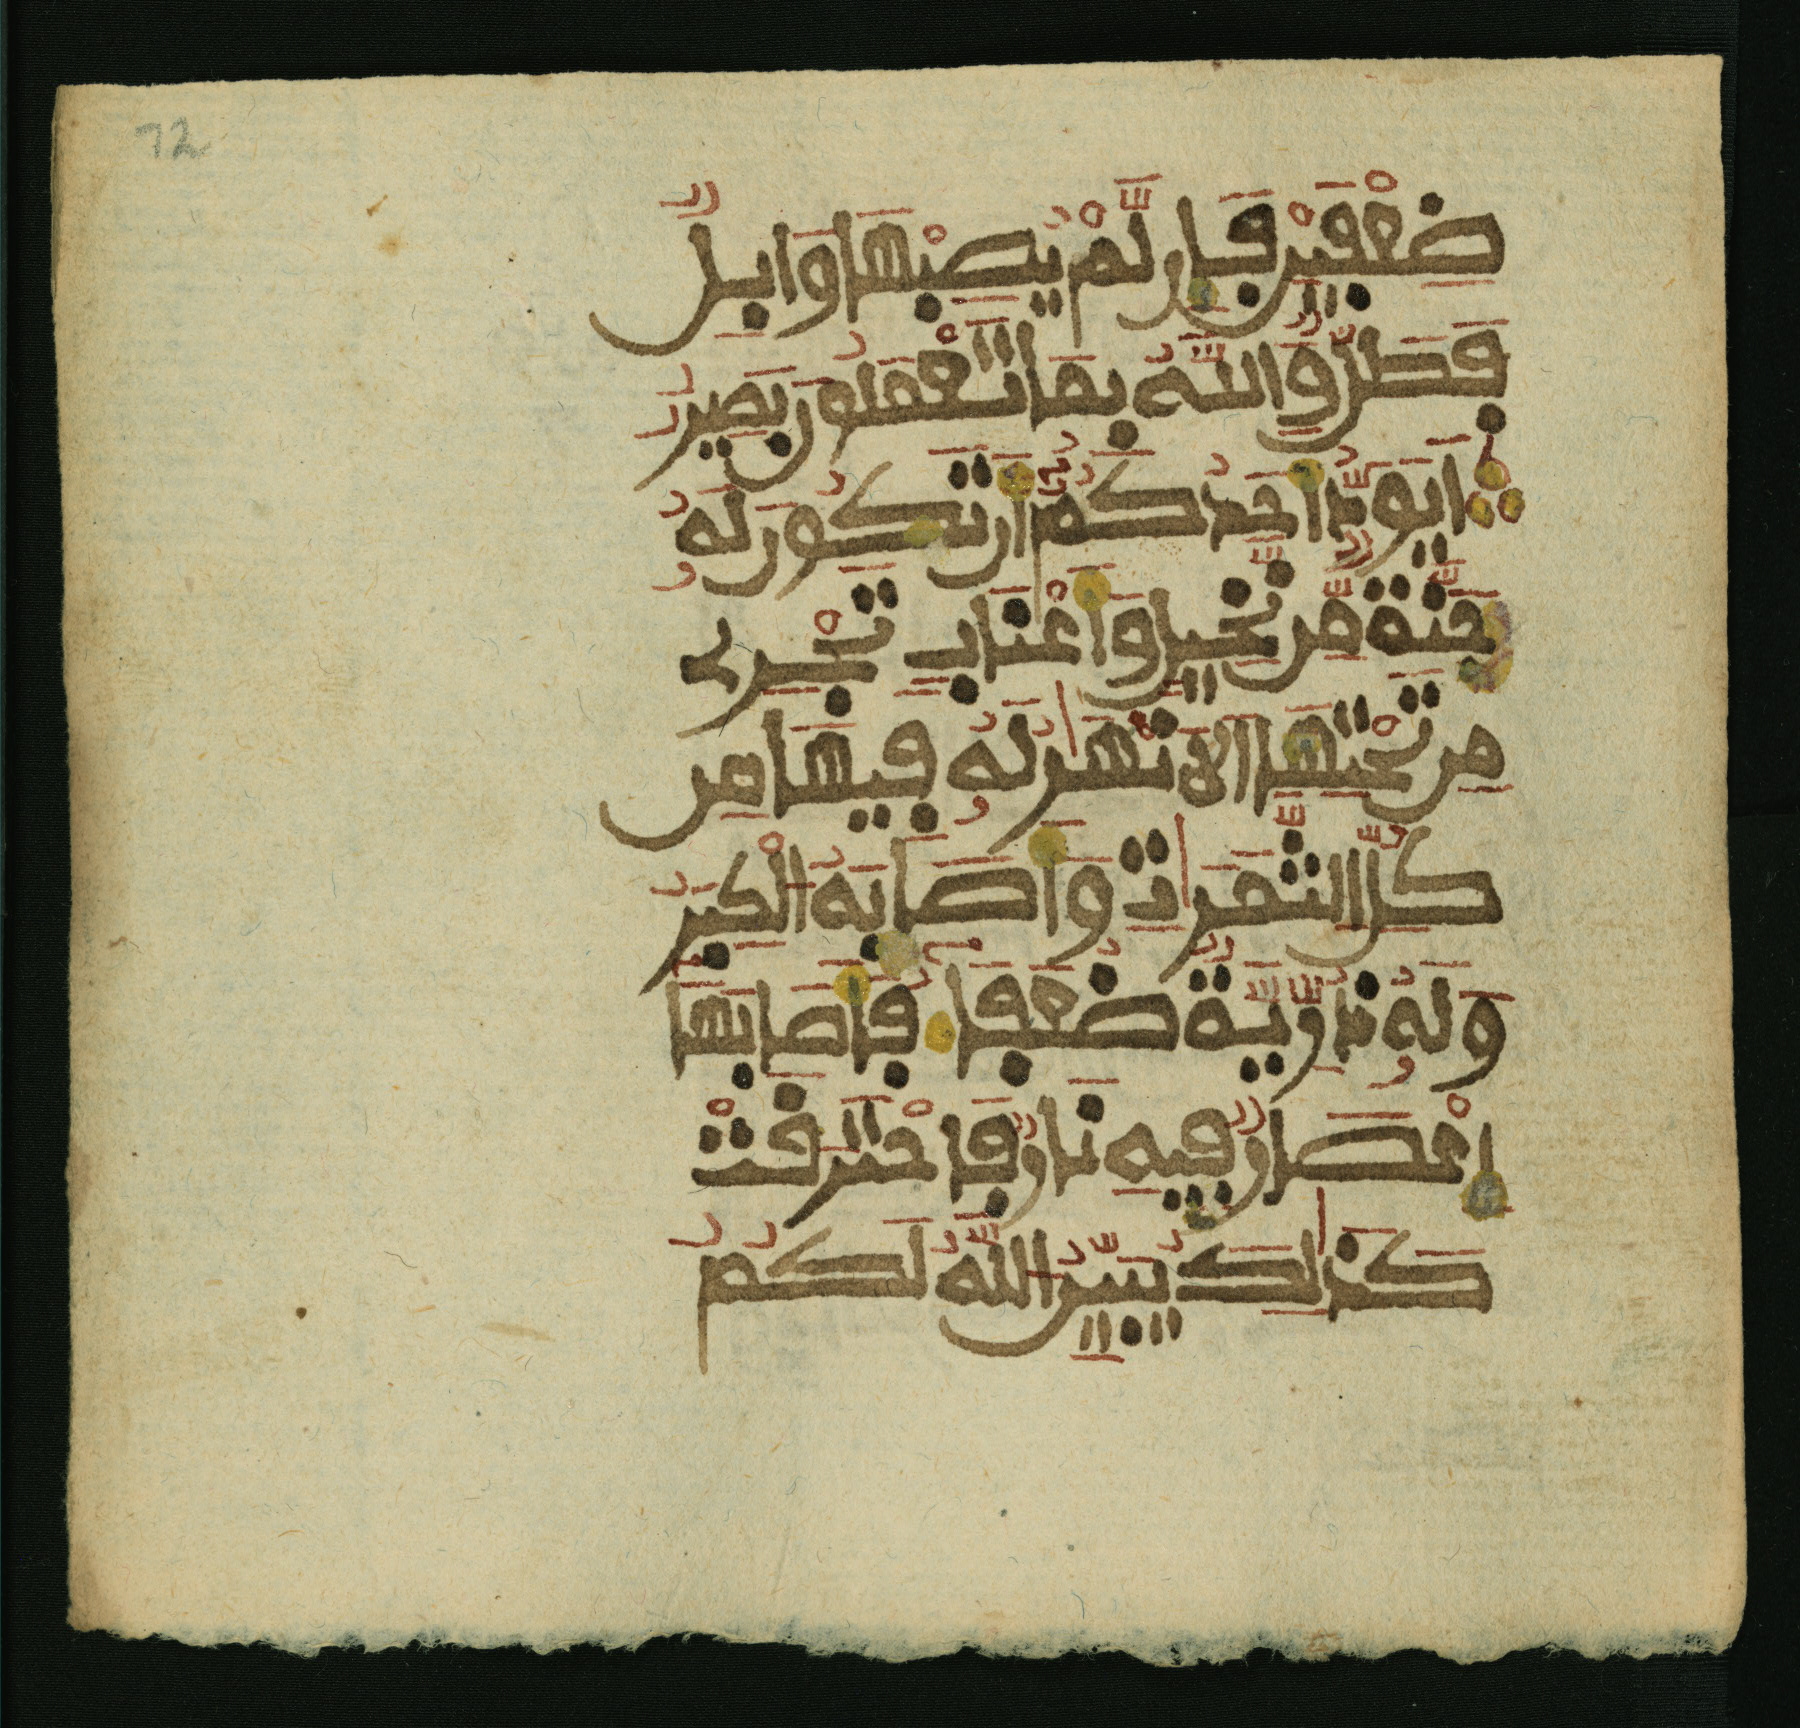 72
ضِعْفَيْنِ فَإِن لَّمْ يُصِبْهَا وَابِلٌ
فَطَلٌّ وَاللَّهُ بِمَا تَعْمَلُونَ بَصِيرٌ
أَيَوَدُّ أَحَدُكُمُ أَن تَكُونَ لَهُ
جَنَّةٌ مِّن نَّخِيلٍ وَأَعْنَابٍ تَجْرِي
مِن تَحْتِهَا الْأَنْهَٰرُ لَهُ فِيهَا مِن
كُلِّ الثَّمَرَٰتِ وَأَصَابَهُ الْكِبَرُ
وَلَهُ ذُرِّيَّةٌ ضُعَفَاءُ فَأَصَابَهَا
إِعْصَارٌ فِيهِ نَارٌ فَاحْتَرَقَتْ
كَذَٰلِكَ يُبَيِّنُ اللَّهُ لَكُمُ